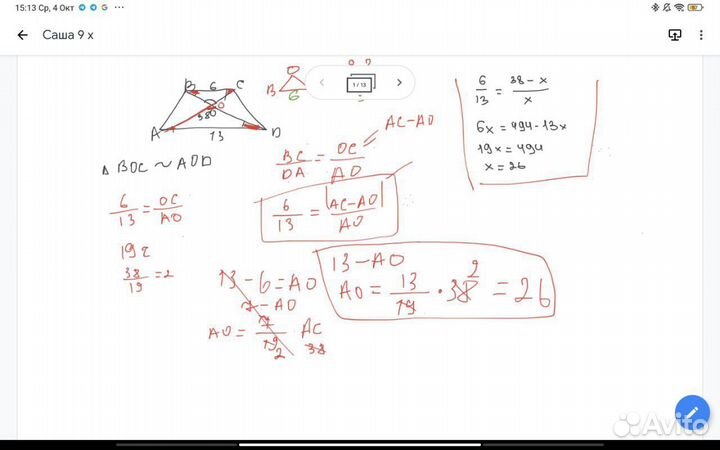 15:13 Ср, 4 Окт
Саша 9 х
B 6 C
O
38
A 13 D
O
B 6
1 / 13
△ BOC ~ AOD
6/13 = OC/AO
19 г
38/19 = 2
BC/DA = OC/AO
AC-AO
6/13 = |AC-AO|/AO
13 - 6 = AO
7 - AO
AO = 7/19 AC
2 38
13 - AO
AO = 13/19 · 38 2 = 26
6/13 = 38-x/x
6x = 494-13x
19x = 494
x = 26
Avito